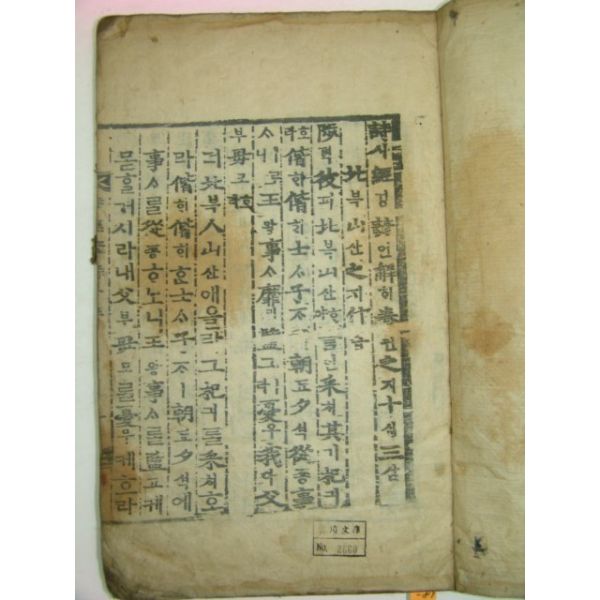 詩시經경諺언解ᄒᆡ卷권之지十십三삼
北북山산之지什십
陟텩彼피北북山산ᄒᆞ야言언采ᄎᆡ其기杞긔
호라偕ᄒᆡ偕ᄒᆡ士ᄉᆞ子ᄌᆞㅣ朝됴夕셕從죵事
ᄉᆞㅣ로니王왕事ᄉᆞ靡미盬고ㅣ라憂우我아父
부母모호라
뎌北북山산애올라그杞긔를采ᄎᆡ호
라偕ᄒᆡ偕ᄒᆡᄒᆞᆫ士ᄉᆞ子ᄌᆞㅣ朝됴夕셕에
事ᄉᆞ를從죵ᄒᆞ노니王왕事ᄉᆞ를盬고케
몯ᄒᆞᆯ거시라내父부母모를憂우케호라
文庫
No.